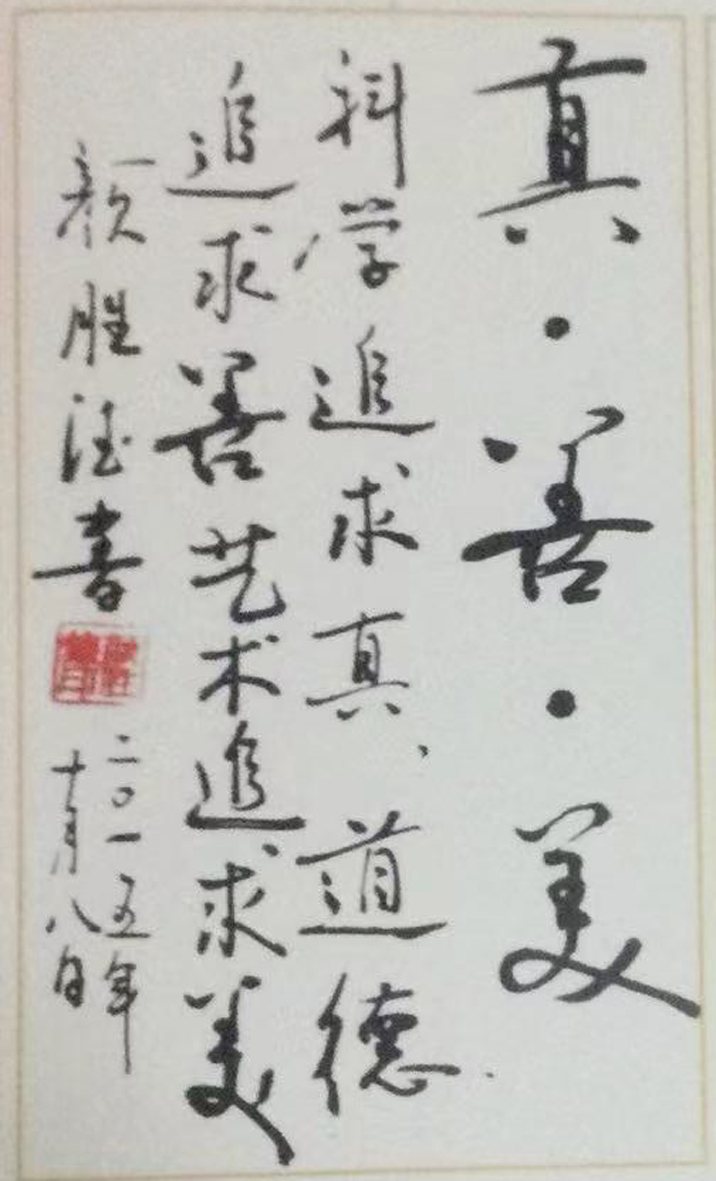 真·善·美
科学追求真、道德
追求善艺术追求美
颜胜法书
二〇一五年
十月八日